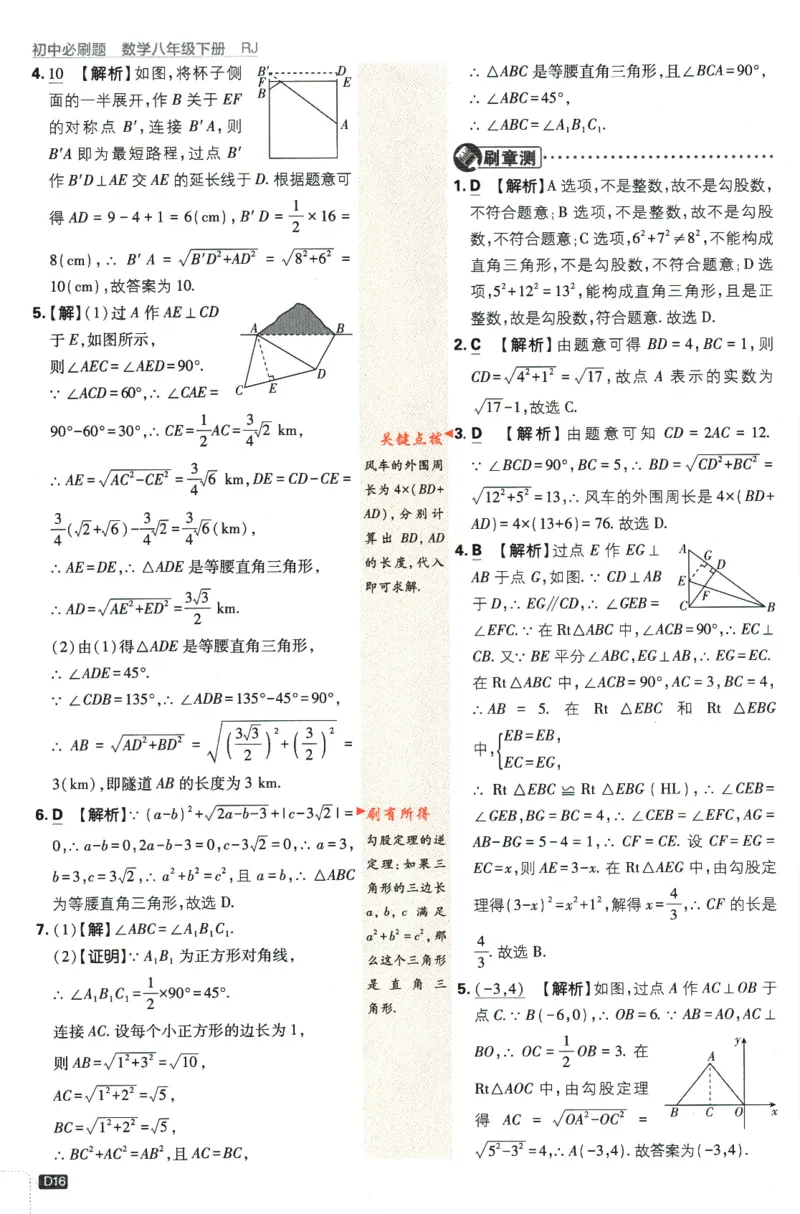 初中必刷题 数学八年级下册 RJ
4. 10 【解析】如图,将杯子侧
面的一半展开,作 B 关于 EF
的对称点 B′,连接 B′A,则
B′A 即为最短路程,过点 B′
作 B′D⊥AE 交 AE 的延长线于 D. 根据题意可
得 AD = 9 - 4 + 1 = 6(cm), B′D = 1/2 × 16 =
8(cm), ∴ B′A = √(B′D²+AD²) = √(8²+6²) =
10(cm),故答案为 10.
B′ D
F E
B
A
5.【解】(1)过 A 作 AE⊥CD
于 E,如图所示,
则∠AEC=∠AED=90°.
∵ ∠ACD=60°,∴ ∠CAE=
90°-60°=30°,∴ CE=1/2AC=3/4√2 km,
∴ AE=√(AC²-CE²)=3/4√6 km,DE=CD-CE=
3/4(√2+√6)-3/4√2=3/4√6(km),
∴ AE=DE,∴ △ADE 是等腰直角三角形,
∴ AD=√(AE²+ED²)=3√3/2 km.
A B
C E D
(2)由(1)得△ADE 是等腰直角三角形,
∴ ∠ADE=45°.
∵ ∠CDB=135°,∴ ∠ADB=135°-45°=90°,
∴ AB = √(AD²+BD²) = √((3√3/2)²+(3/2)²) =
3(km),即隧道 AB 的长度为 3 km.
6. D 【解析】∵ (a-b)²+√(2a-b-3)+|c-3√2|=
0,∴ a-b=0,2a-b-3=0,c-3√2=0,∴ a=3,
b=3,c=3√2,∴ a²+b²=c²,且 a=b,∴ △ABC
为等腰直角三角形,故选 D.
7. (1)【解】∠ABC=∠A₁B₁C₁.
(2)【证明】∵ A₁B₁ 为正方形对角线,
∴ ∠A₁B₁C₁=1/2×90°=45°.
连接 AC. 设每个小正方形的边长为 1,
则 AB=√(1²+3²)=√10,
AC=√(1²+2²)=√5,
BC=√(1²+2²)=√5,
∴ BC²+AC²=AB²,且 AC=BC,
D16
关键点拨
风车的外围周
长为 4×(BD+
AD),分别计
算出 BD,AD
的长度,代入
即可求解.
刷有所得
勾股定理的逆
定理:如果三
角形的三边长
a,b,c 满足
a²+b²=c²,那
么这个三角形
是直角三
角形.
∴ △ABC 是等腰直角三角形,且∠BCA=90°,
∴ ∠ABC=45°,
∴ ∠ABC=∠A₁B₁C₁.
刷章测
1. D 【解析】A 选项,不是整数,故不是勾股数,
不符合题意;B 选项,不是整数,故不是勾股
数,不符合题意;C 选项,6²+7²≠8²,不能构成
直角三角形,不是勾股数,不符合题意;D 选
项,5²+12²=13²,能构成直角三角形,且是正
整数,故是勾股数,符合题意. 故选 D.
2. C 【解析】由题意可得 BD=4,BC=1,则
CD=√(4²+1²)=√17,故点 A 表示的实数为
√17-1,故选 C.
3. D 【解析】由题意可知 CD=2AC=12.
∵ ∠BCD=90°,BC=5,∴ BD=√(CD²+BC²)=
√(12²+5²)=13,∴ 风车的外围周长是 4×(BD+
AD)=4×(13+6)=76. 故选 D.
4. B 【解析】过点 E 作 EG⊥
AB 于点 G,如图. ∵ CD⊥AB
于 D,∴ EG∥CD,∴ ∠GEB=
∠EFC. ∵ 在 Rt△ABC 中,∠ACB=90°,∴ EC⊥
CB. 又∵ BE 平分∠ABC,EG⊥AB,∴ EG=EC.
在 Rt△ABC 中,∠ACB=90°,AC=3,BC=4,
∴ AB = 5. 在 Rt △EBC 和 Rt △EBG
中,{EB=EB,
EC=EG,
∴ Rt △EBC ≌ Rt △EBG (HL),∴ ∠CEB=
∠GEB,BG=BC=4,∴ ∠CEB=∠EFC,AG=
AB-BG=5-4=1,∴ CF=CE. 设 CF=EG=
EC=x,则 AE=3-x. 在 Rt△AEG 中,由勾股定
理得(3-x)²=x²+1²,解得 x=4/3,∴ CF 的长是
4/3. 故选 B.
A G D
E
F
C B
5. (-3,4) 【解析】如图,过点 A 作 AC⊥OB 于
点 C. ∵ B(-6,0),∴ OB=6. ∵ AB=AO,AC⊥
BO,∴ OC=1/2OB=3. 在
Rt△AOC 中,由勾股定理
得 AC = √(OA²-OC²) =
√(5²-3²)=4,∴ A(-3,4). 故答案为(-3,4).
y
A
B C O x